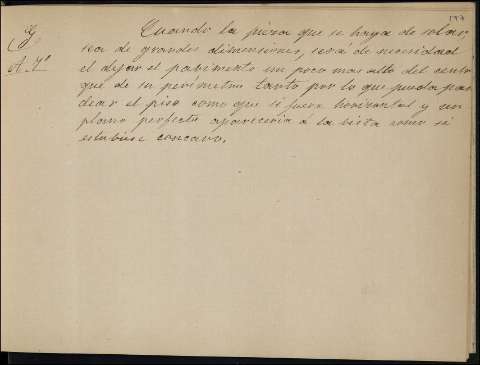 Cuando la pieza que se haya de solar,
sea de grandes dimensiones, será de necesidad
el dejar el pavimento un poco mas alto del centro
que de su perímetro tanto por lo que pueda pan
dear el piso como que si fuera horizontal y un
plano perfecto apareceria á la vista como si
estubiese concavo.